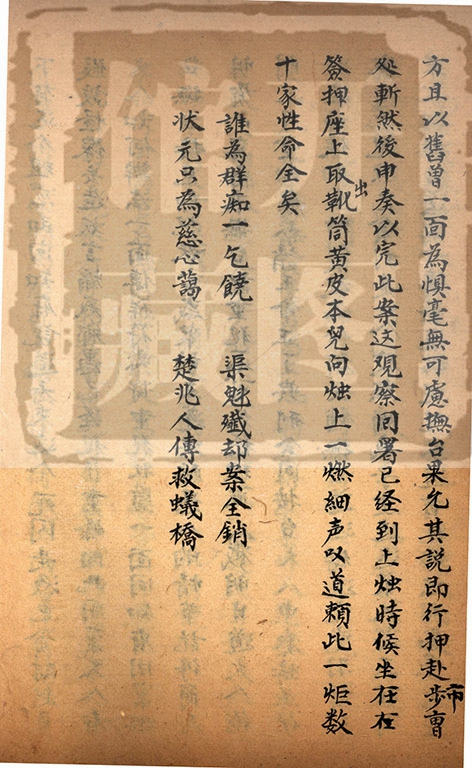 方且以舊曾一面為惧毫無可慮撫台果允其説即行押赴市曹
处斬然後申奏以完此案这观察回署已经到上烛時候坐在在
簽押座上取出靴筒黄皮本兒向烛上一燃細声叹道頼此一炬数
十家性命全矣
誰為群痴一乞饒　渠魁殲却案全銷
状元只為慈心藹　楚兆人傳救蟻橋